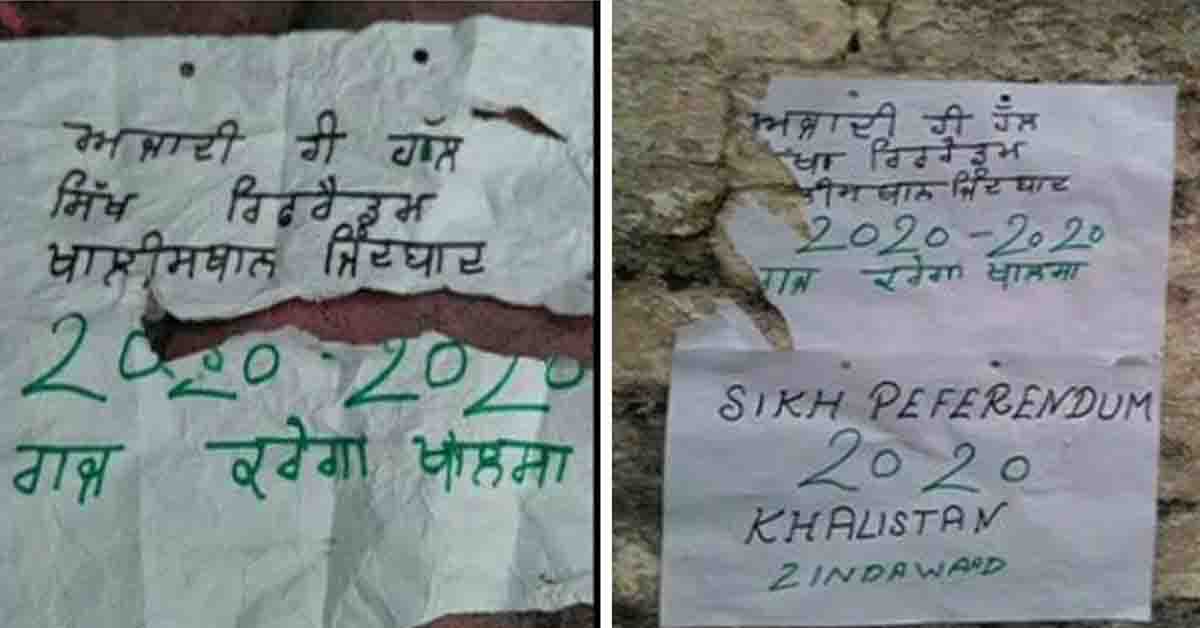 ਅਜਾਦੀ ਹੀ ਹੱਲ
ਸਿੱਖ ਰਿਫਰੈਡਮ
ਖਾਲੀਸਥਾਨ ਜਿੰਦਬਾਦ
2020-2020
ਰਾਜ ਕਰੇਗਾ ਖਾਲਸਾ
ਅਜਾਦੀ ਹੀ ਹੱਲ
ਰਿਫਰੈਡਮ
ਜਿੰਦਬਾਦ
2020-2020
ਰਾਜ ਕਰੇਗਾ ਖਾਲਸਾ
SIKH PEFERENDUM
2020
KHALISTAN
ZINDAWAAD